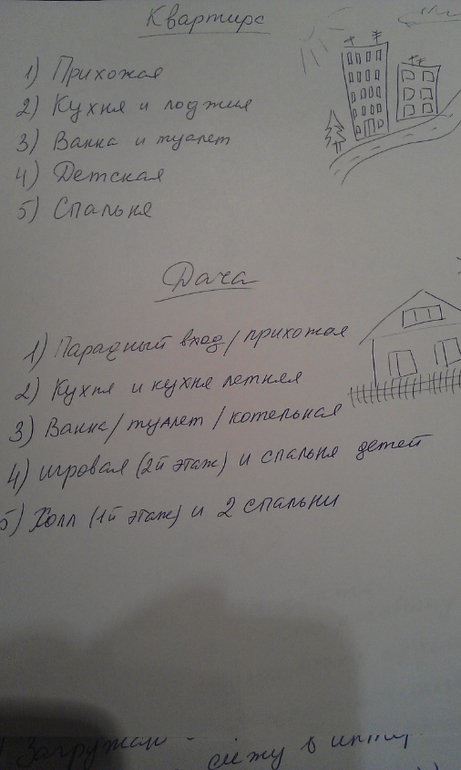 Квартира
1) Прихожая
2) Кухня и лоджия
3) Ванна и туалет
4) Детская
5) Спальня
Дача
1) Парадный вход/прихожая
2) Кухня и кухня летняя
3) Ванна/туалет/котельная
4) игровая (2й этаж) и спальня детей
5) Холл (1й этаж) и 2 спальни
Загружаю
сижу в